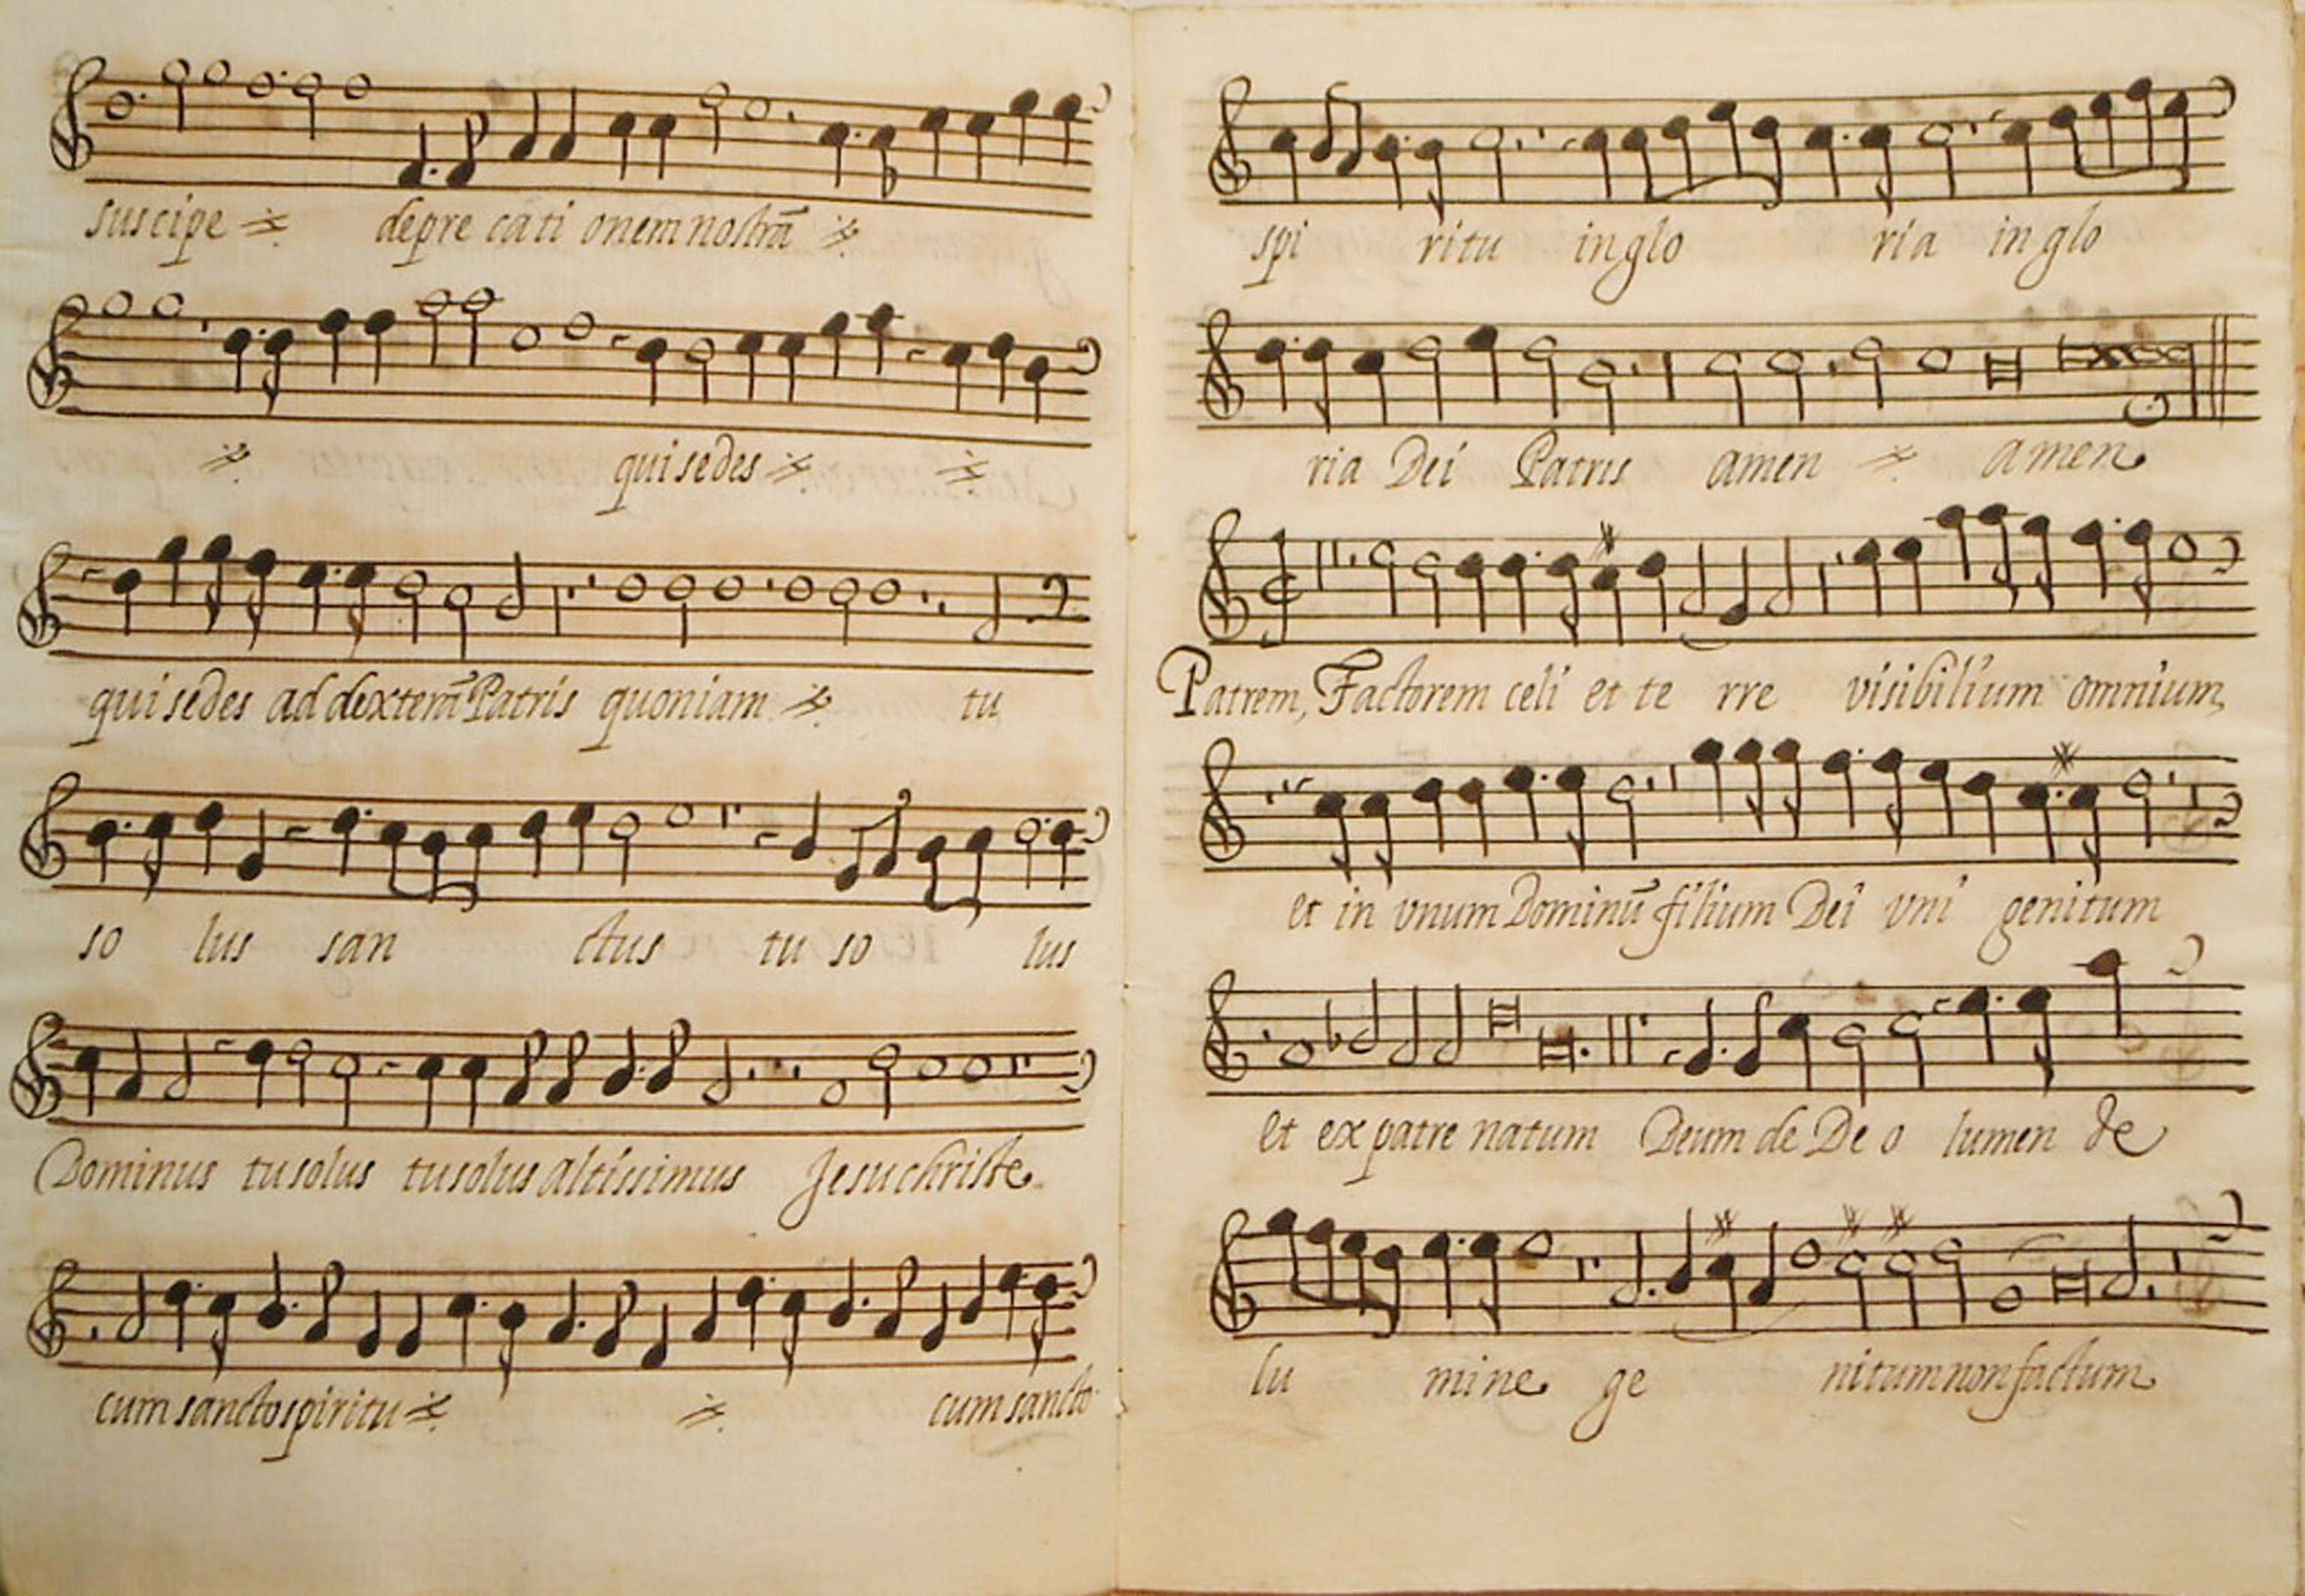 suscipe depre cati onem nostrã
qui sedes
qui sedes ad dexterã Patris quoniam tu
so lus san ctus tu so lus
Dominus tu solus tu solus altissimus Jesu christe
cum sancto spiritu cum sancto
spi ritu in glo ria in glo
ria Dei Patris amen amen
Patrem, Factorem celi et te rre visibilium omnium,
et in vnum Dominũ filium Dei vni genitum
et ex patre natum Deum de De o lumen de
lu mine ge nitum non factum